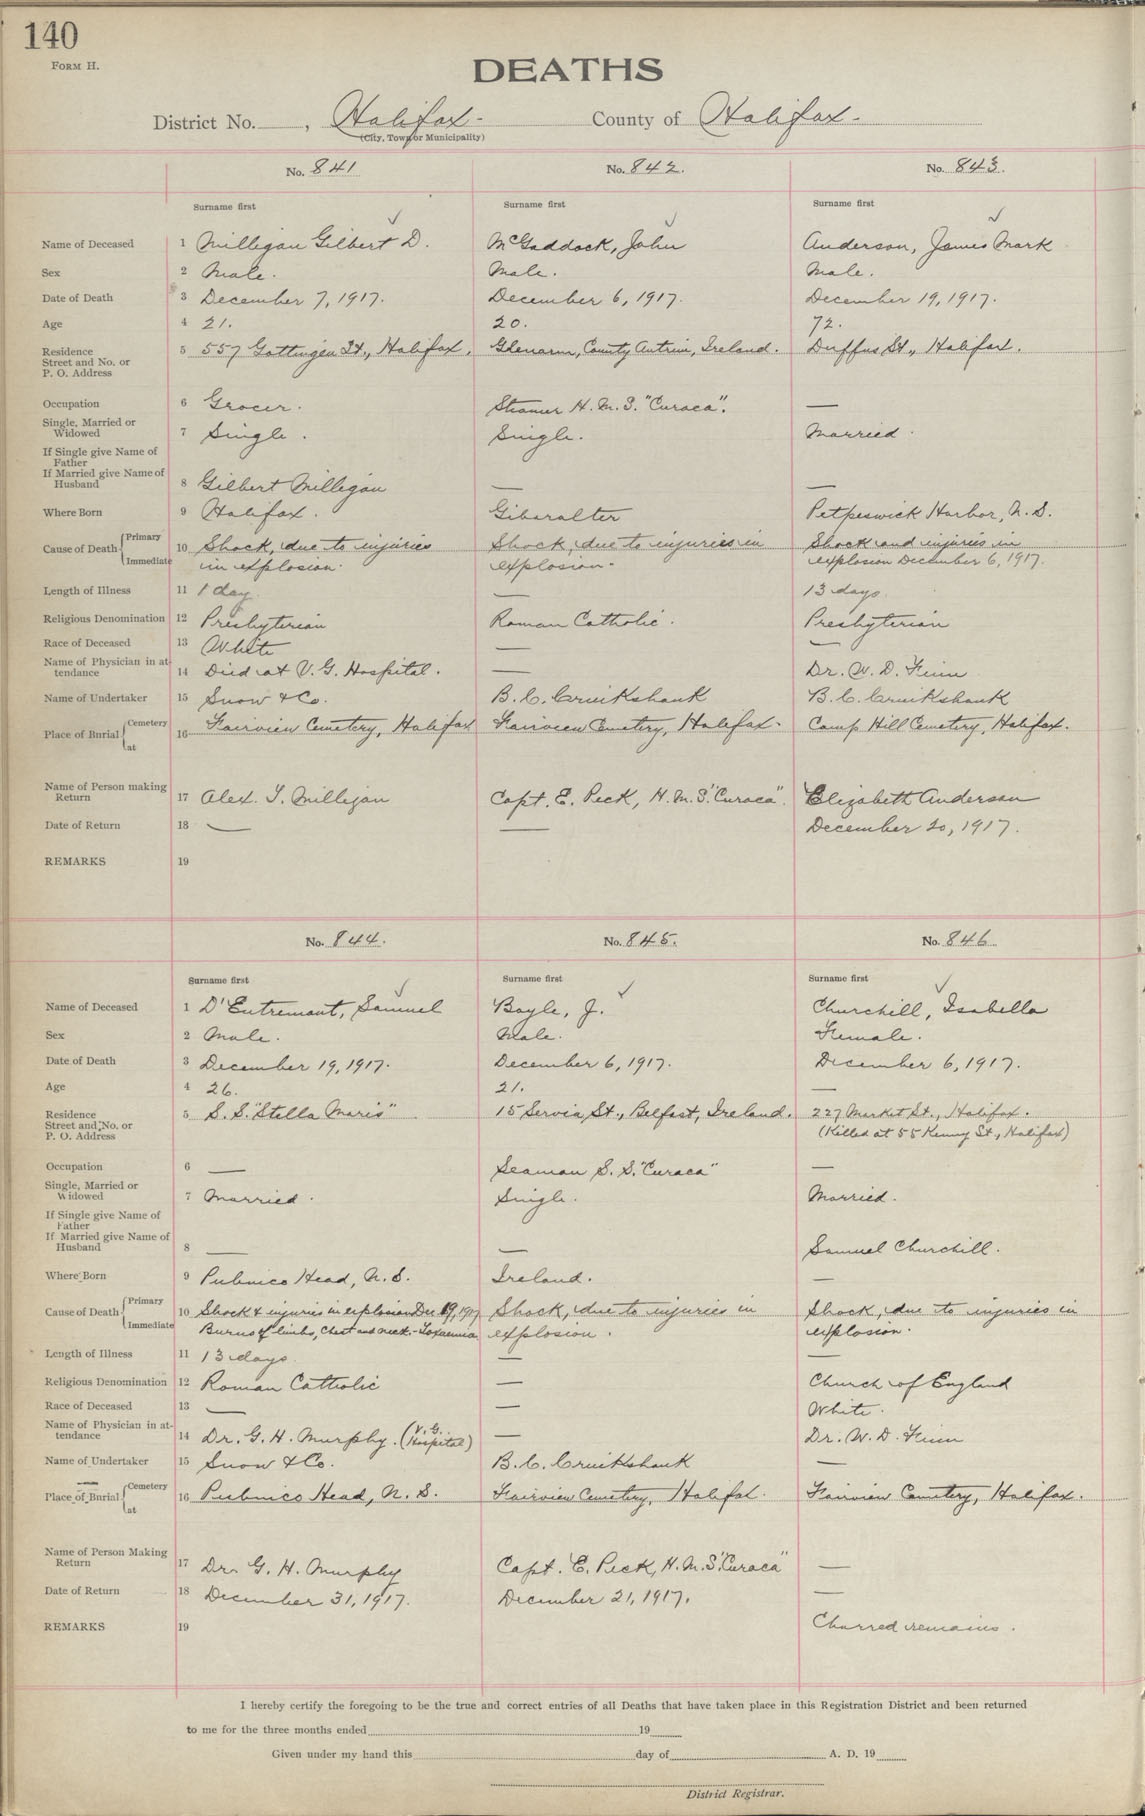 140
FORM H.
DEATHS
District No. , Halifax - County of Halifax -
(City, Town or Municipality)
No. 841 No. 842. No. 843.
Surname first Surname first Surname first
Name of Deceased 1 Milligan Gilbert D. McGaddock, John Anderson, James Mark
Sex 2 Male. Male. Male.
Date of Death 3 December 7, 1917. December 6, 1917. December 19, 1917.
Age 4 21. 20. 72.
Residence
Street and No. or 5 557 Gottingen St., Halifax. Glenarm, County Antrim, Ireland. Duffus St., Halifax.
P. O. Address
Occupation 6 Grocer. Steamer H. M. S. "Curaca". —
Single, Married or
Widowed 7 Single. Single. Married.
If Single give Name of
Father
If Married give Name of
Husband 8 Gilbert Milligan — —
Where Born 9 Halifax. Gibaralter Petpeswick Harbor, N. S.
Cause of Death Primary 10 Shock, due to injuries Shock, due to injuries in Shock and injuries in
Immediate in explosion. explosion. explosion December 6, 1917.
Length of Illness 11 1 day — 13 days
Religious Denomination 12 Presbyterian Roman Catholic. Presbyterian
Race of Deceased 13 White — —
Name of Physician in at-
tendance 14 Died at V. G. Hospital. — Dr. W. D. Finn
Name of Undertaker 15 Snow & Co. B. C. Cruikshank B. C. Cruikshank
Place of Burial Cemetery at 16 Fairview Cemetery, Halifax Fairview Cemetery, Halifax. Camp Hill Cemetery, Halifax.
Name of Person making
Return 17 Alex. T. Milligan Capt. E. Peck, H. M. S. "Curaca". Elizabeth Anderson
Date of Return 18 — — December 20, 1917.
REMARKS 19
No. 844. No. 845. No. 846
Surname first Surname first Surname first
Name of Deceased 1 D'Entremont, Samuel Boyle, J. Churchill, Isabella
Sex 2 Male. Male. Female.
Date of Death 3 December 19, 1917. December 6, 1917. December 6, 1917.
Age 4 26. 21. —
Residence
Street and No. or 5 S. S. "Stella Maris" 15 Servia St., Belfast, Ireland. 227 Market St., Halifax.
P. O. Address (Killed at 55 Kenny St., Halifax)
Occupation 6 — Seaman S. S. "Curaca" —
Single, Married or
Widowed 7 Married. Single. Married.
If Single give Name of
Father
If Married give Name of
Husband 8 — — Samuel Churchill.
Where Born 9 Pubnico Head, N. S. Ireland. —
Cause of Death Primary 10 Shock & injuries in explosion Dec. 1917 Shock, due to injuries in Shock, due to injuries in
Immediate Burns of limbs, chest and neck - Toxaemia explosion. explosion.
Length of Illness 11 13 days — —
Religious Denomination 12 Roman Catholic — Church of England
Race of Deceased 13 — — White.
Name of Physician in at-
tendance 14 Dr. G. H. Murphy. (V. G. Hospital) — Dr. W. D. Finn
Name of Undertaker 15 Snow & Co. B. C. Cruikshank —
Place of Burial Cemetery at 16 Pubnico Head, N. S. Fairview Cemetery, Halifax. Fairview Cemetery, Halifax.
Name of Person Making
Return 17 Dr. G. H. Murphy Capt. E. Peck, H. M. S. "Curaca" —
Date of Return 18 December 31, 1917. December 21, 1917. —
REMARKS 19 Charred remains.
I hereby certify the foregoing to be the true and correct entries of all Deaths that have taken place in this Registration District and been returned
to me for the three months ended 19
Given under my hand this day of A. D. 19
District Registrar.